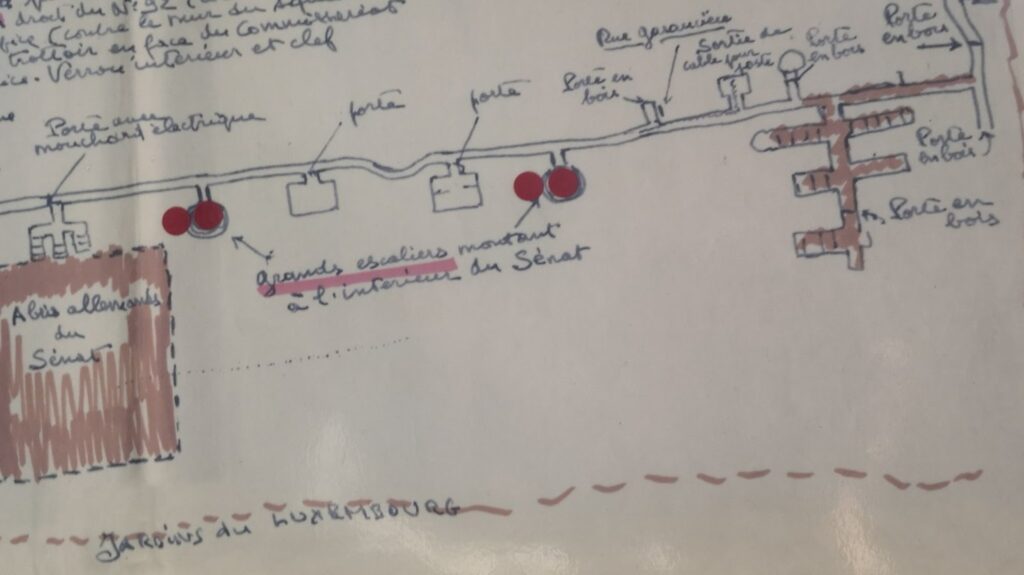 droit du N° 92
(contre le mur du
trottoir en face du Commissariat
Verrou intérieur et clef
Rue garancière
Sortie de
cable pour
Porte
en bois
Porte
en bois
Porte en
bois
porte
porte
Porte avec
mouchard électrique
Porte
en bois
Porte en
bois
grands escaliers montant
à l'intérieur du Sénat
Abris allemands
du
Sénat
JARDINS du LUXEMBOURG